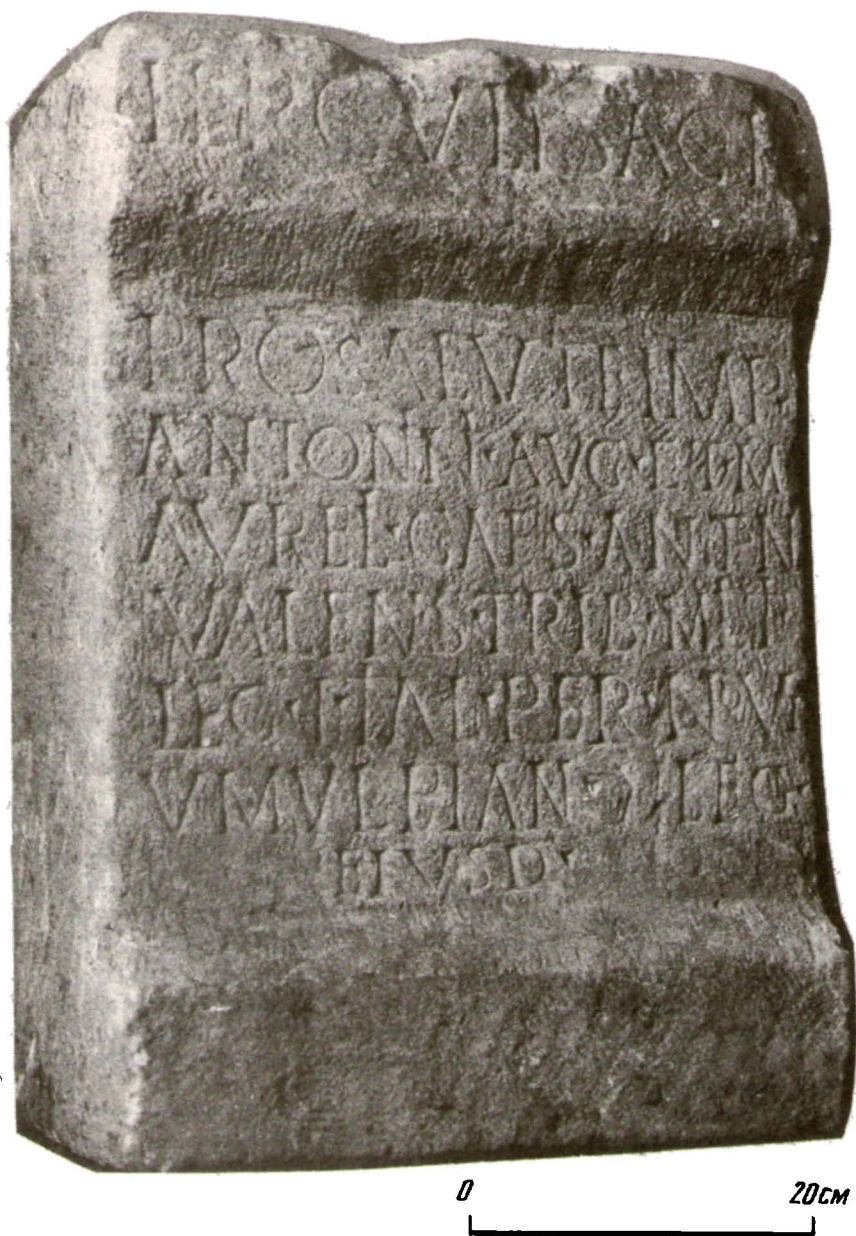 HERCVLI SACR
PRO SALVTE IMP
ANTONINI·AVG·ET·M
AVREL·CAES·ANT·N
VALENS·TRIB·MILIT
LEG·I·ITAL·PER
VLPIAN·LEG·
EIVSD
0 20см